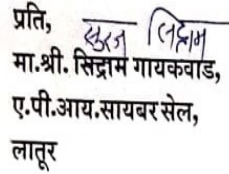 प्रति, सुरज सिद्राम
मा.श्री. सिद्राम गायकवाड,
ए.पी.आय.सायबर सेल,
लातूर